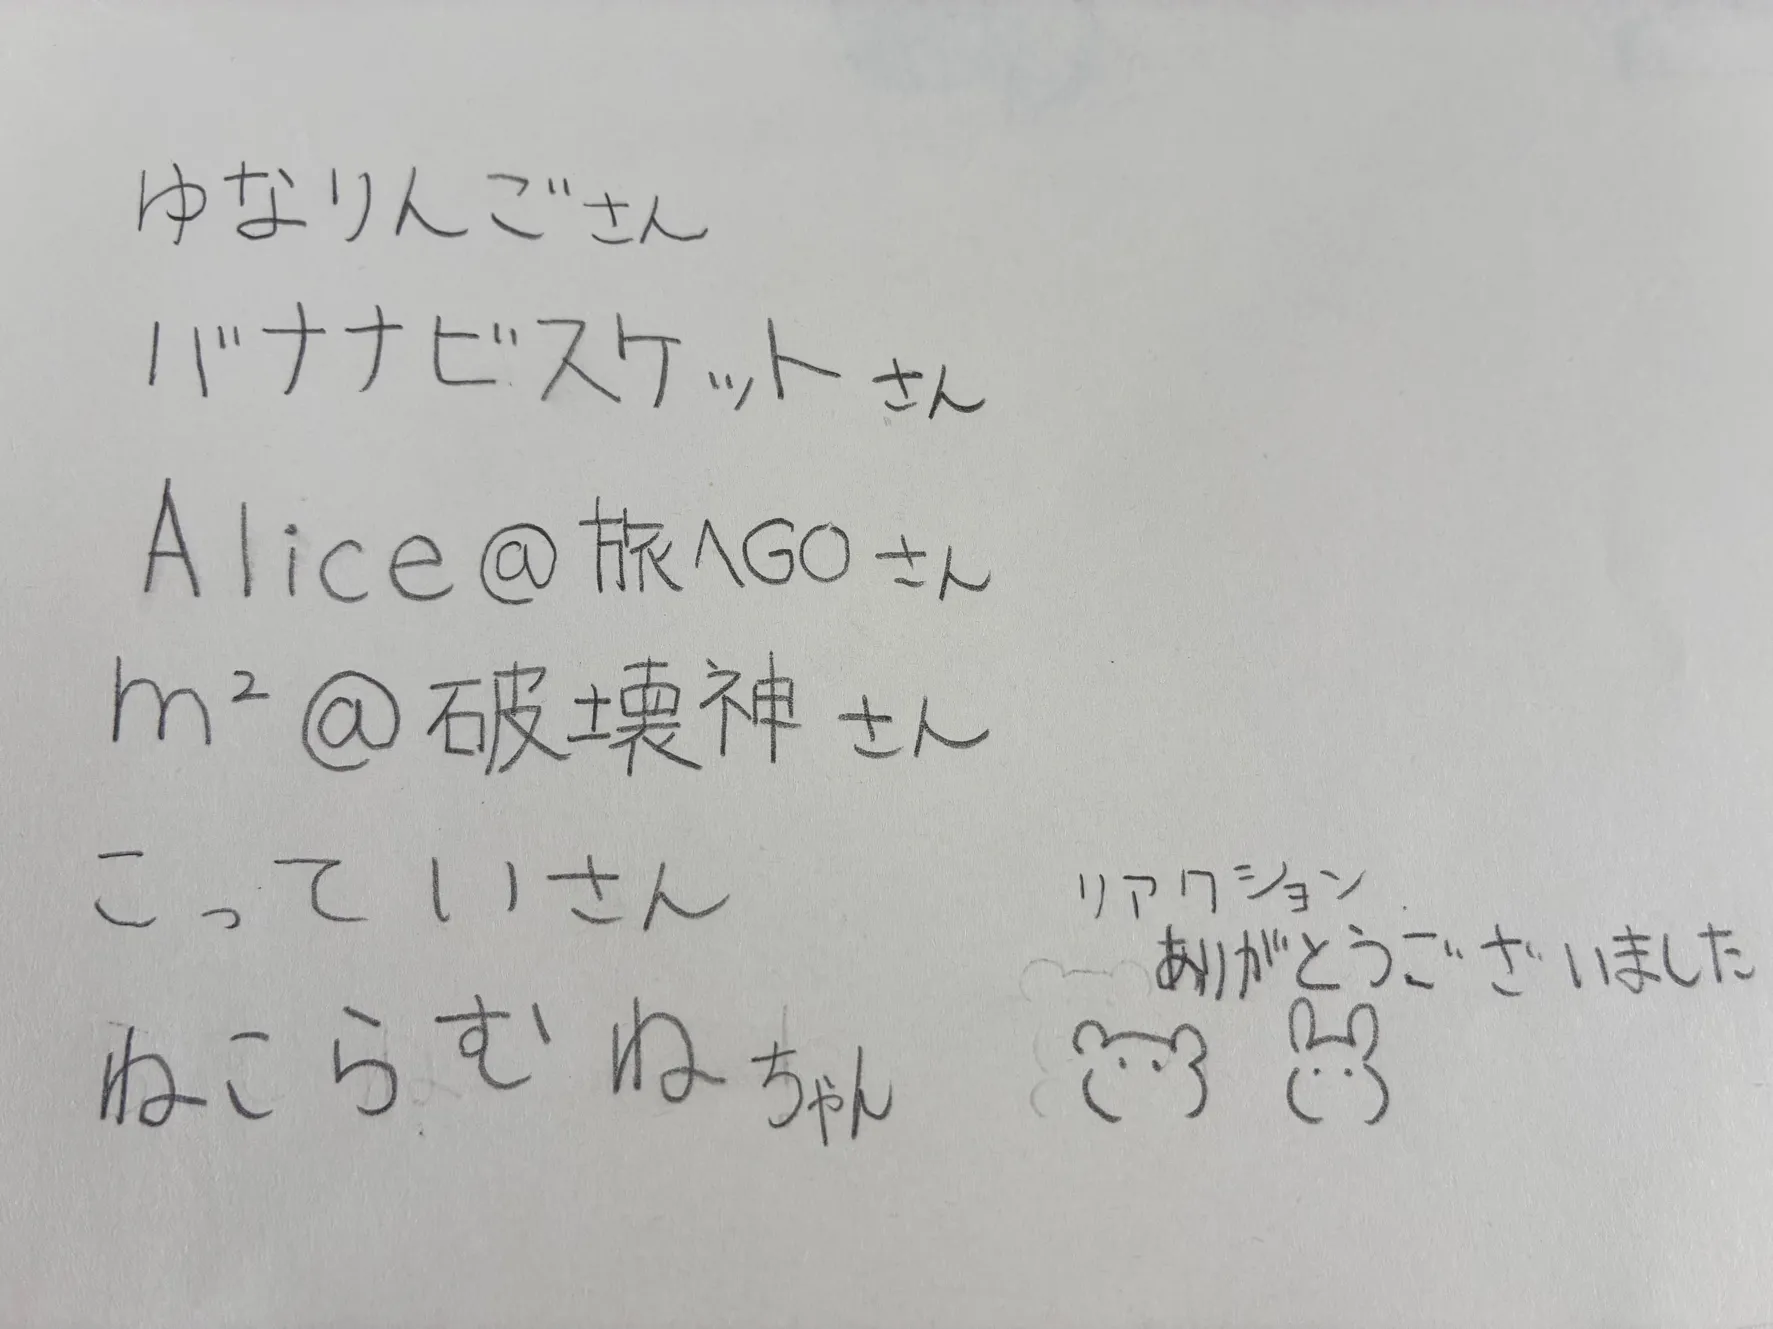 ゆなりんごさん
バナナビスケットさん
Alice@旅へGOさん
m²@破壊神さん
こっていさん
ねこらむねちゃん
リアクション
ありがとうございました